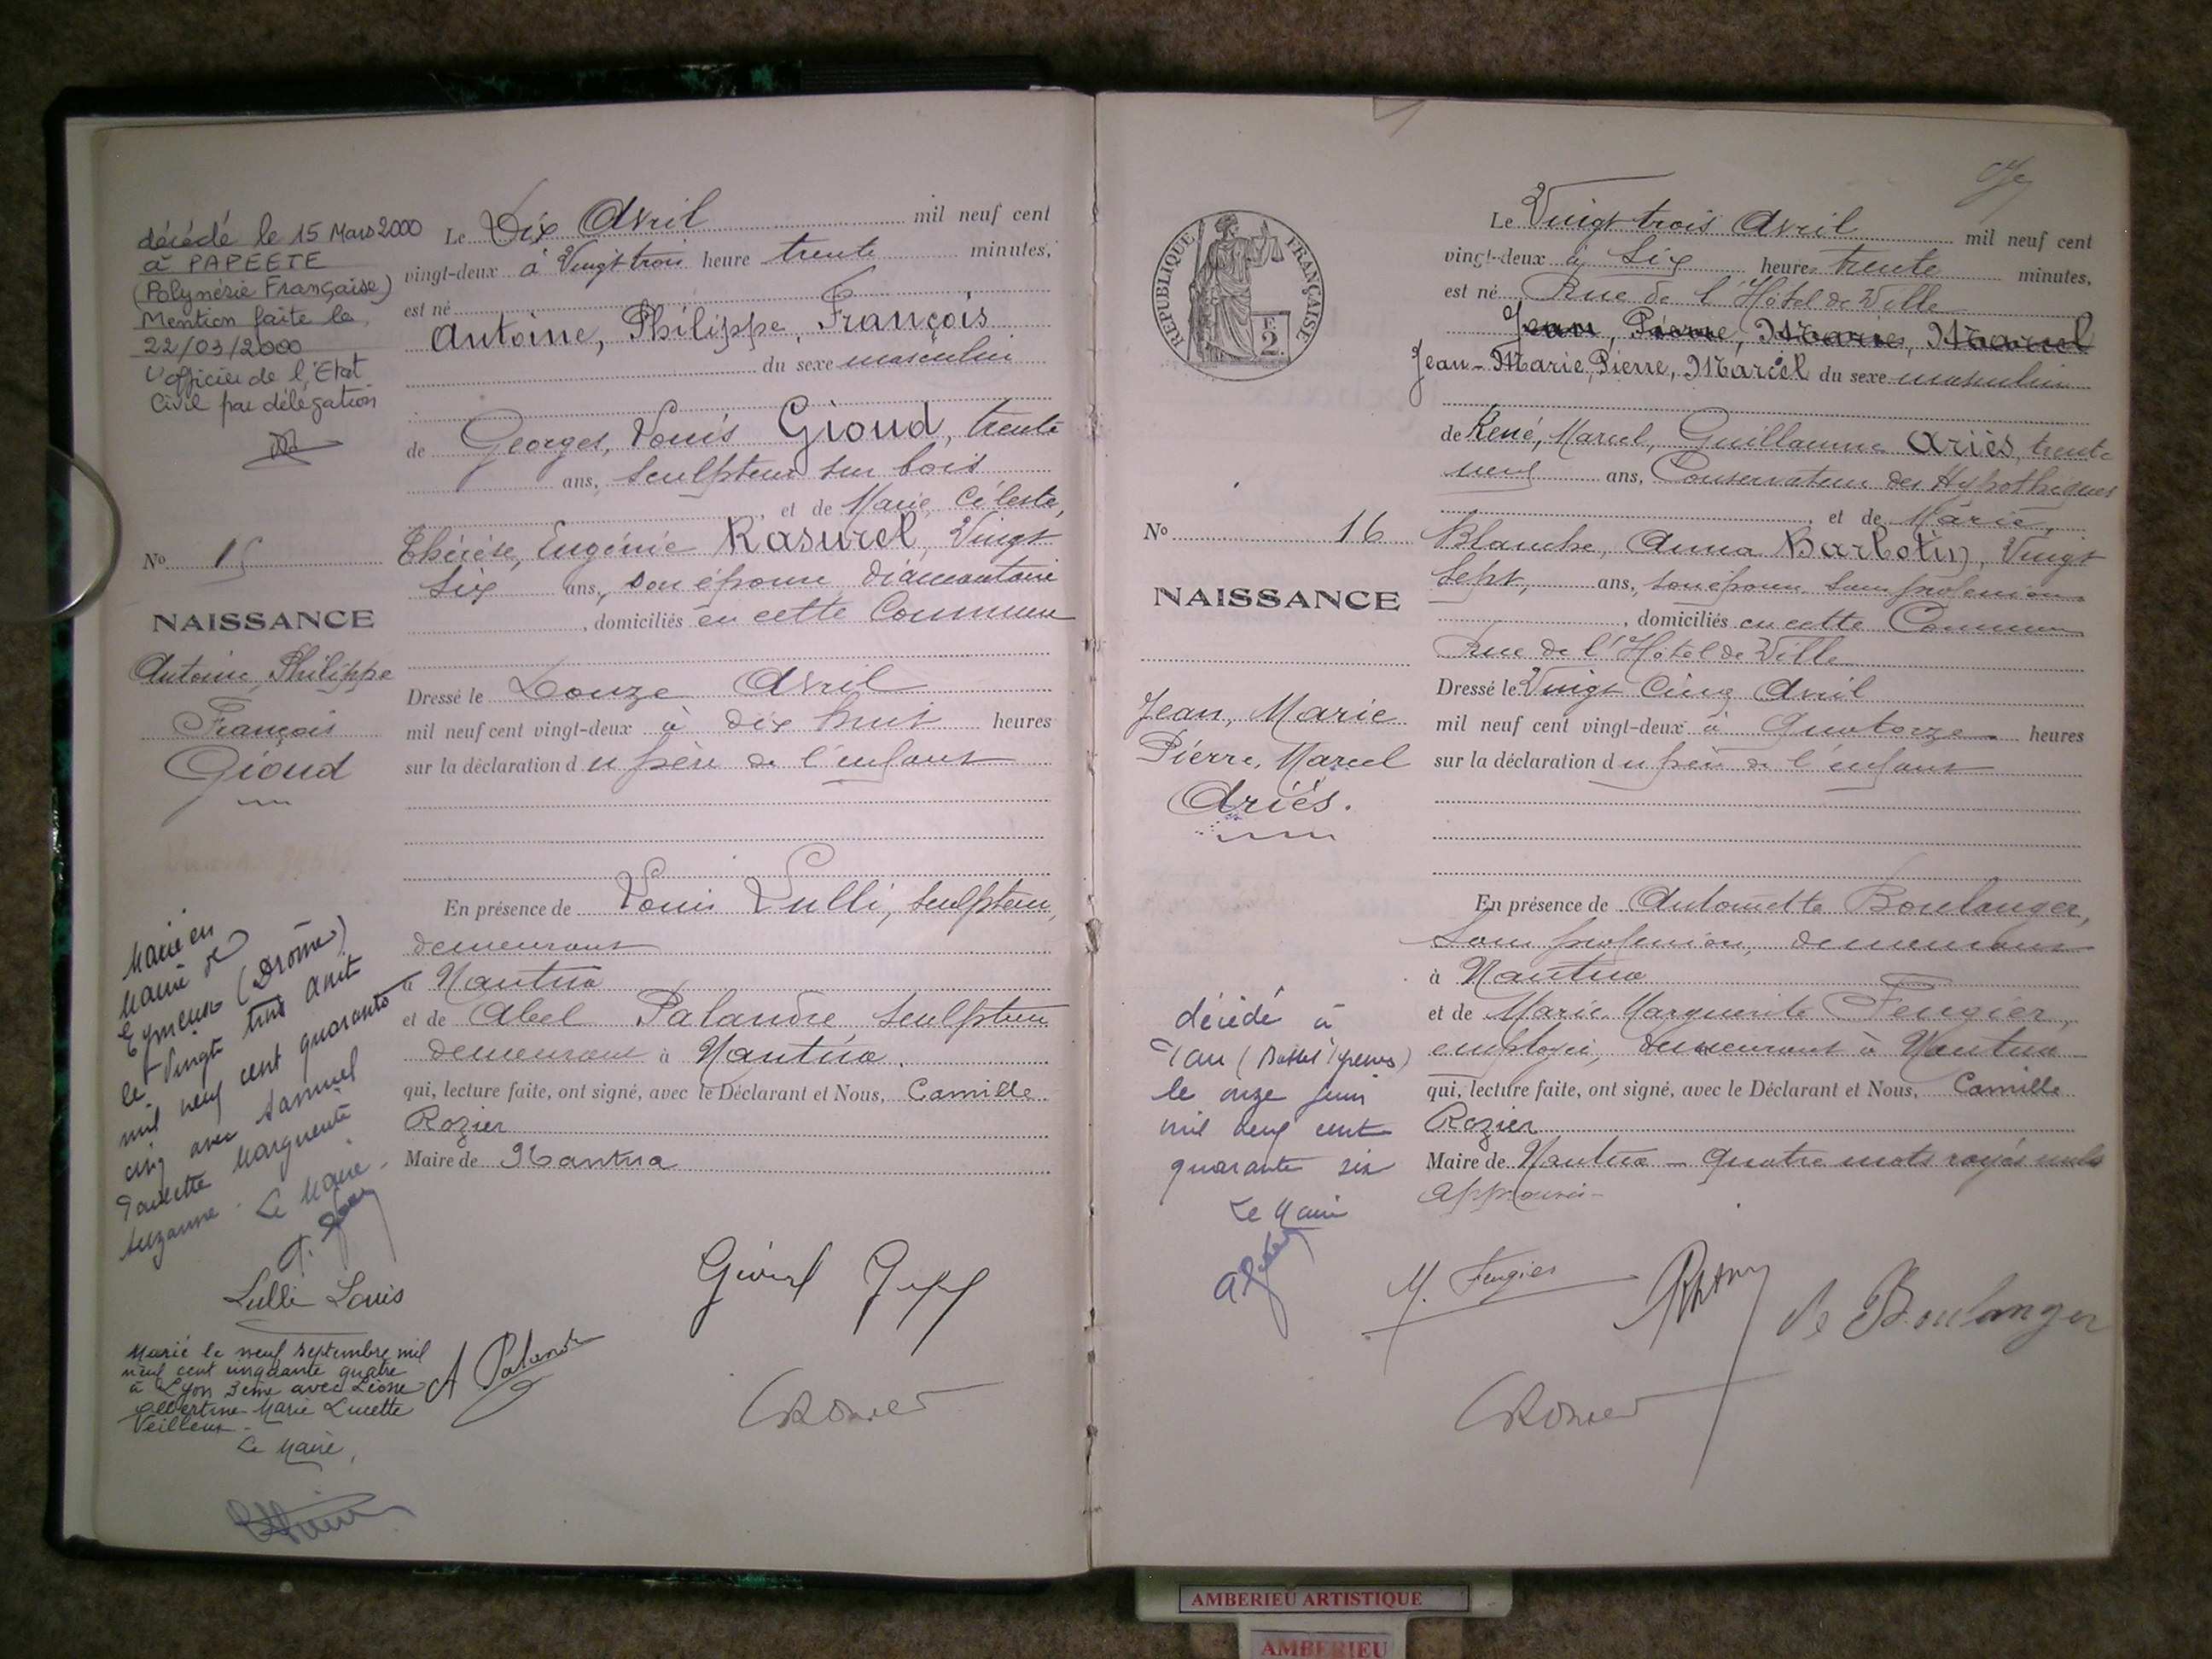 décédé le 15 Mars 2000
à PAPEETE
(Polynésie Française)
Mention faite le
22/03/2000
L'officier de l'Etat
Civil par délégation
No 15
NAISSANCE
Antoine, Philippe
François
Gioud
Marié en
Mairie de
Eymeux (Drôme)
le vingt trois août
mil neuf cent quarante
cinq avec Samuel
Paulette Marguerite
Suzanne. Le Maire.
Lulli Louis
Marié le neuf septembre mil
neuf cent cinquante quatre
à Lyon 3ème avec Léone
Albertine Marie Lucette
Veilleux
Le Maire,
Le Dix Avril mil neuf cent
vingt-deux à Vingt trois heure trente minutes,
est né
Antoine, Philippe, François
du sexe masculin
de Georges, Louis Gioud, trente
ans, sculpteur sur bois
et de Marie, Céleste,
Thérèse, Eugénie Rasurel, Vingt
six ans, son épouse, diamantaire
, domiciliés en cette Commune
Dressé le Douze Avril
mil neuf cent vingt-deux à dix huit heures
sur la déclaration du père de l'enfant
En présence de Louis Lulli, sculpteur,
demeurant
à Nantua
et de Abel Palandre sculpteur
demeurant à Nantua.
qui, lecture faite, ont signé, avec le Déclarant et Nous, Camille
Rozier
Maire de Nantua
A Palandre
CRozier
REPUBLIQUE FRANÇAISE
2
No 16
NAISSANCE
Jean, Marie
Pierre, Marcel
Ariès.
décédé à
Pau (Basses Pyrénées)
le onze juin
mil neuf cent
quarante six
Le Maire
Le Vingt trois Avril mil neuf cent
vingt-deux à Six heures trente minutes,
est né Rue de l'Hôtel de Ville
Jean, Pierre, Marie, Marcel
Jean-Marie, Pierre, Marcel du sexe masculin
de René, Marcel, Guillaume Ariès, trente
neuf ans, Conservateur des Hypothèques
, et de Marie,
Blanche, Anna Barbotin, Vingt
sept, ans, son épouse sans profession
, domiciliés en cette Commune
Rue de l'Hôtel de Ville
Dressé le Vingt Cinq Avril
mil neuf cent vingt-deux à Quatorze heures
sur la déclaration du père de l'enfant
En présence de Antoinette Boulanger,
sans profession, demeurant
à Nantua
et de Marie Marguerite Feugier,
employée, demeurant à Nantua
qui, lecture faite, ont signé, avec le Déclarant et Nous, Camille
Rozier
Maire de Nantua – Quatre mots rayés nuls
Approuvés –
M. Feugier
de Boulanger
CRozier
AMBERIEU ARTISTIQUE
AMBERIEU